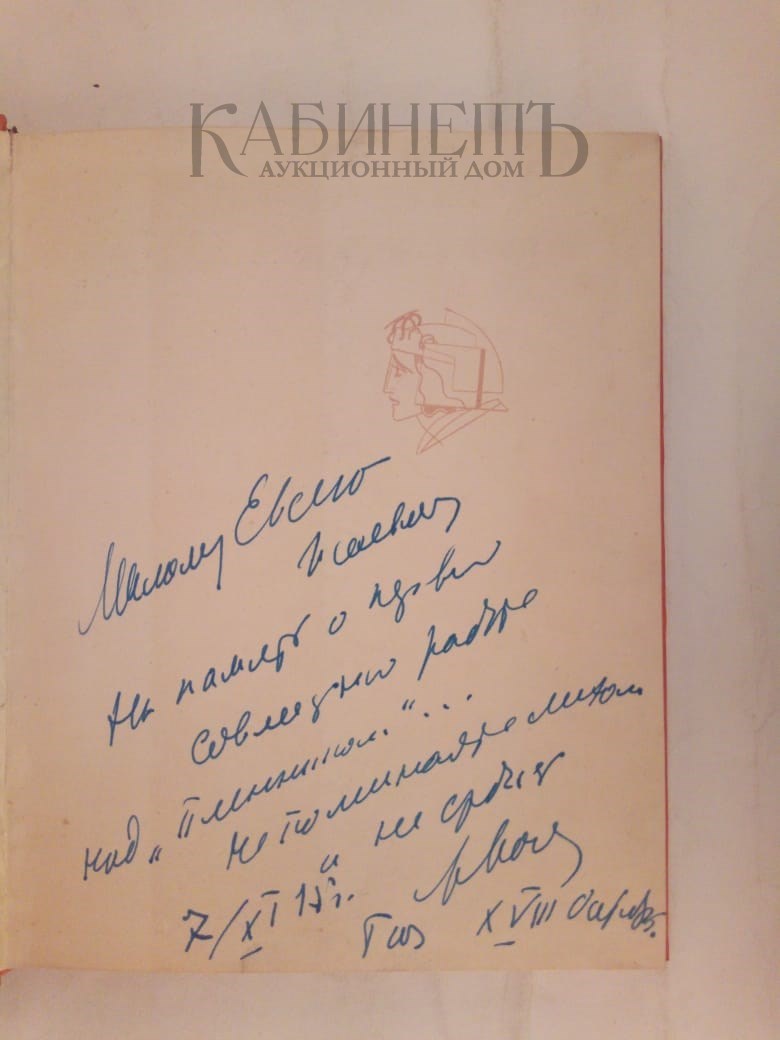 КАБИНЕТЪ
АУКЦИОННЫЙ ДОМ
Милому Евсею
На память о первой
совместной работе
над „Пленником“...
Не поминайте лихом
и не сердитесь
7/XI
XVIII